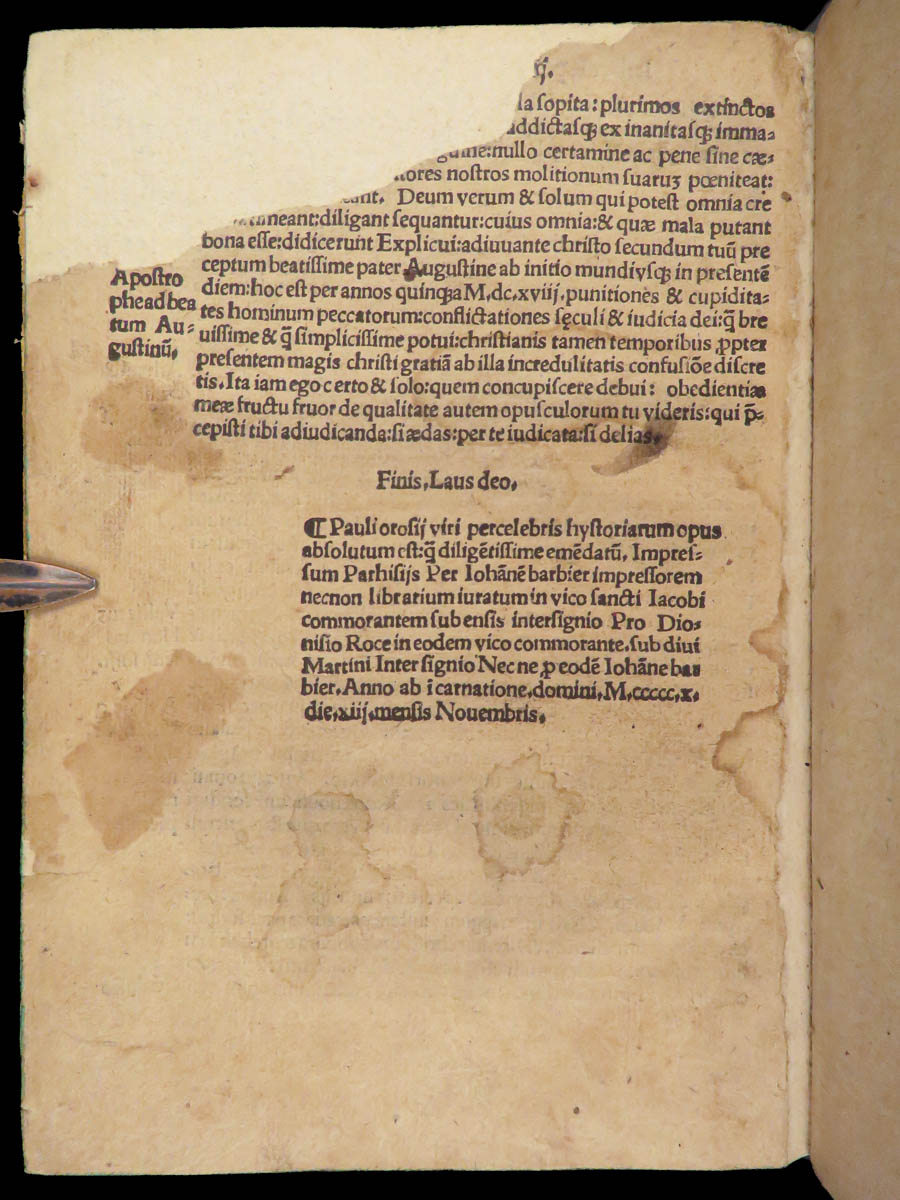 ij.
la sopita: plurimos extinctos
addictasq; ex inanitasq; imma-
guine: nullo certamine ac pene sine cæ-
tores nostros molitionum suaruꝫ pœniteat:
Deum verum & solum qui potest omnia cre
timeant: diligant sequantur: cuius omnia: & quæ mala putant
bona esse: didicerunt Explicui: adiuuante christo secundum tuũ pre
ceptum beatissime pater Augustine ab initio mundi vsq; in presentẽ
diem: hoc est per annos quinq; a M, dc, xviij, punitiones & cupidita-
tes hominum peccatorum: conflictationes sęculi & iudicia dei: q̃ bre
uissime & q̃ simplicissime potui: christianis tamen temporibus ꝓpter
presentem magis christi gratiã ab illa incredulitatis confusiõe discre
tis, Ita iam ego certo & solo: quem concupiscere debui: obedientiæ
meæ fructu fruor de qualitate autem opusculorum tu videris: qui p̃-
cepisti tibi adiudicanda: si ædas: per te iudicata: si delias,
Apostro
phe ad bea
tum Au-
gustinũ,
Finis, Laus deo,
¶ Pauli orosij viri percelebris hystoriarum opus
absolutum est: q̃ diligẽtissime emẽdatũ, Impres-
sum Parhisijs Per Iohãnẽ barbier impressorem
necnon librarium iuratum in vico sancti Iacobi
commorantem sub ensis intersignio Pro Dio-
nisio Roce in eodem vico commorante, sub diui
Martini Intersignio Nec ne ꝓ eodẽ Iohãne bar
bier, Anno ab ĩcarnatione, domini, M, ccccc, x,
die, xiij, mensis Nouembris,